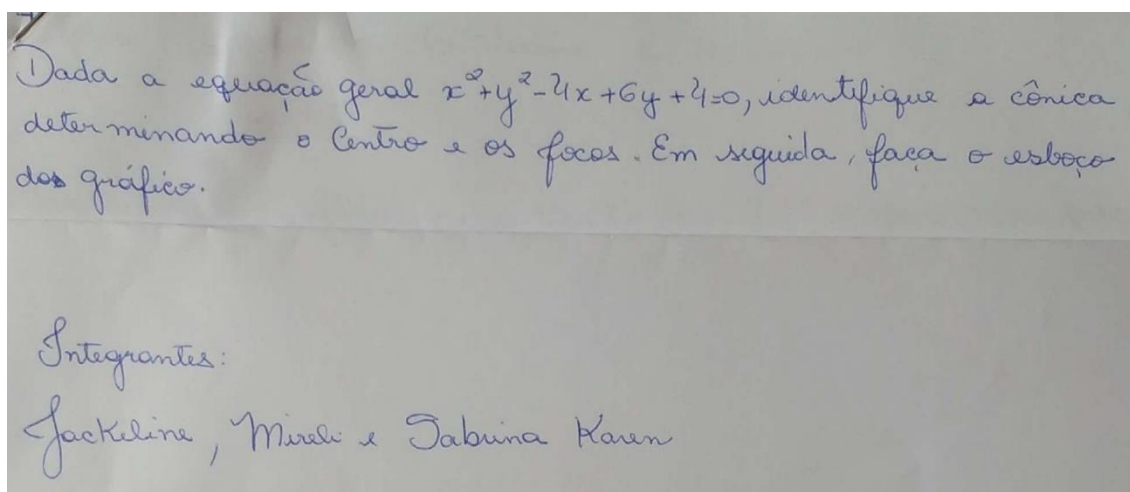 Dada a equação geral x²+y²-4x+6y+4=0, identifique a cônica
determinando o Centro e os focos. Em seguida, faça o esboço
do gráfico.
Integrantes:
Jackeline, Mireli e Sabrina Karen